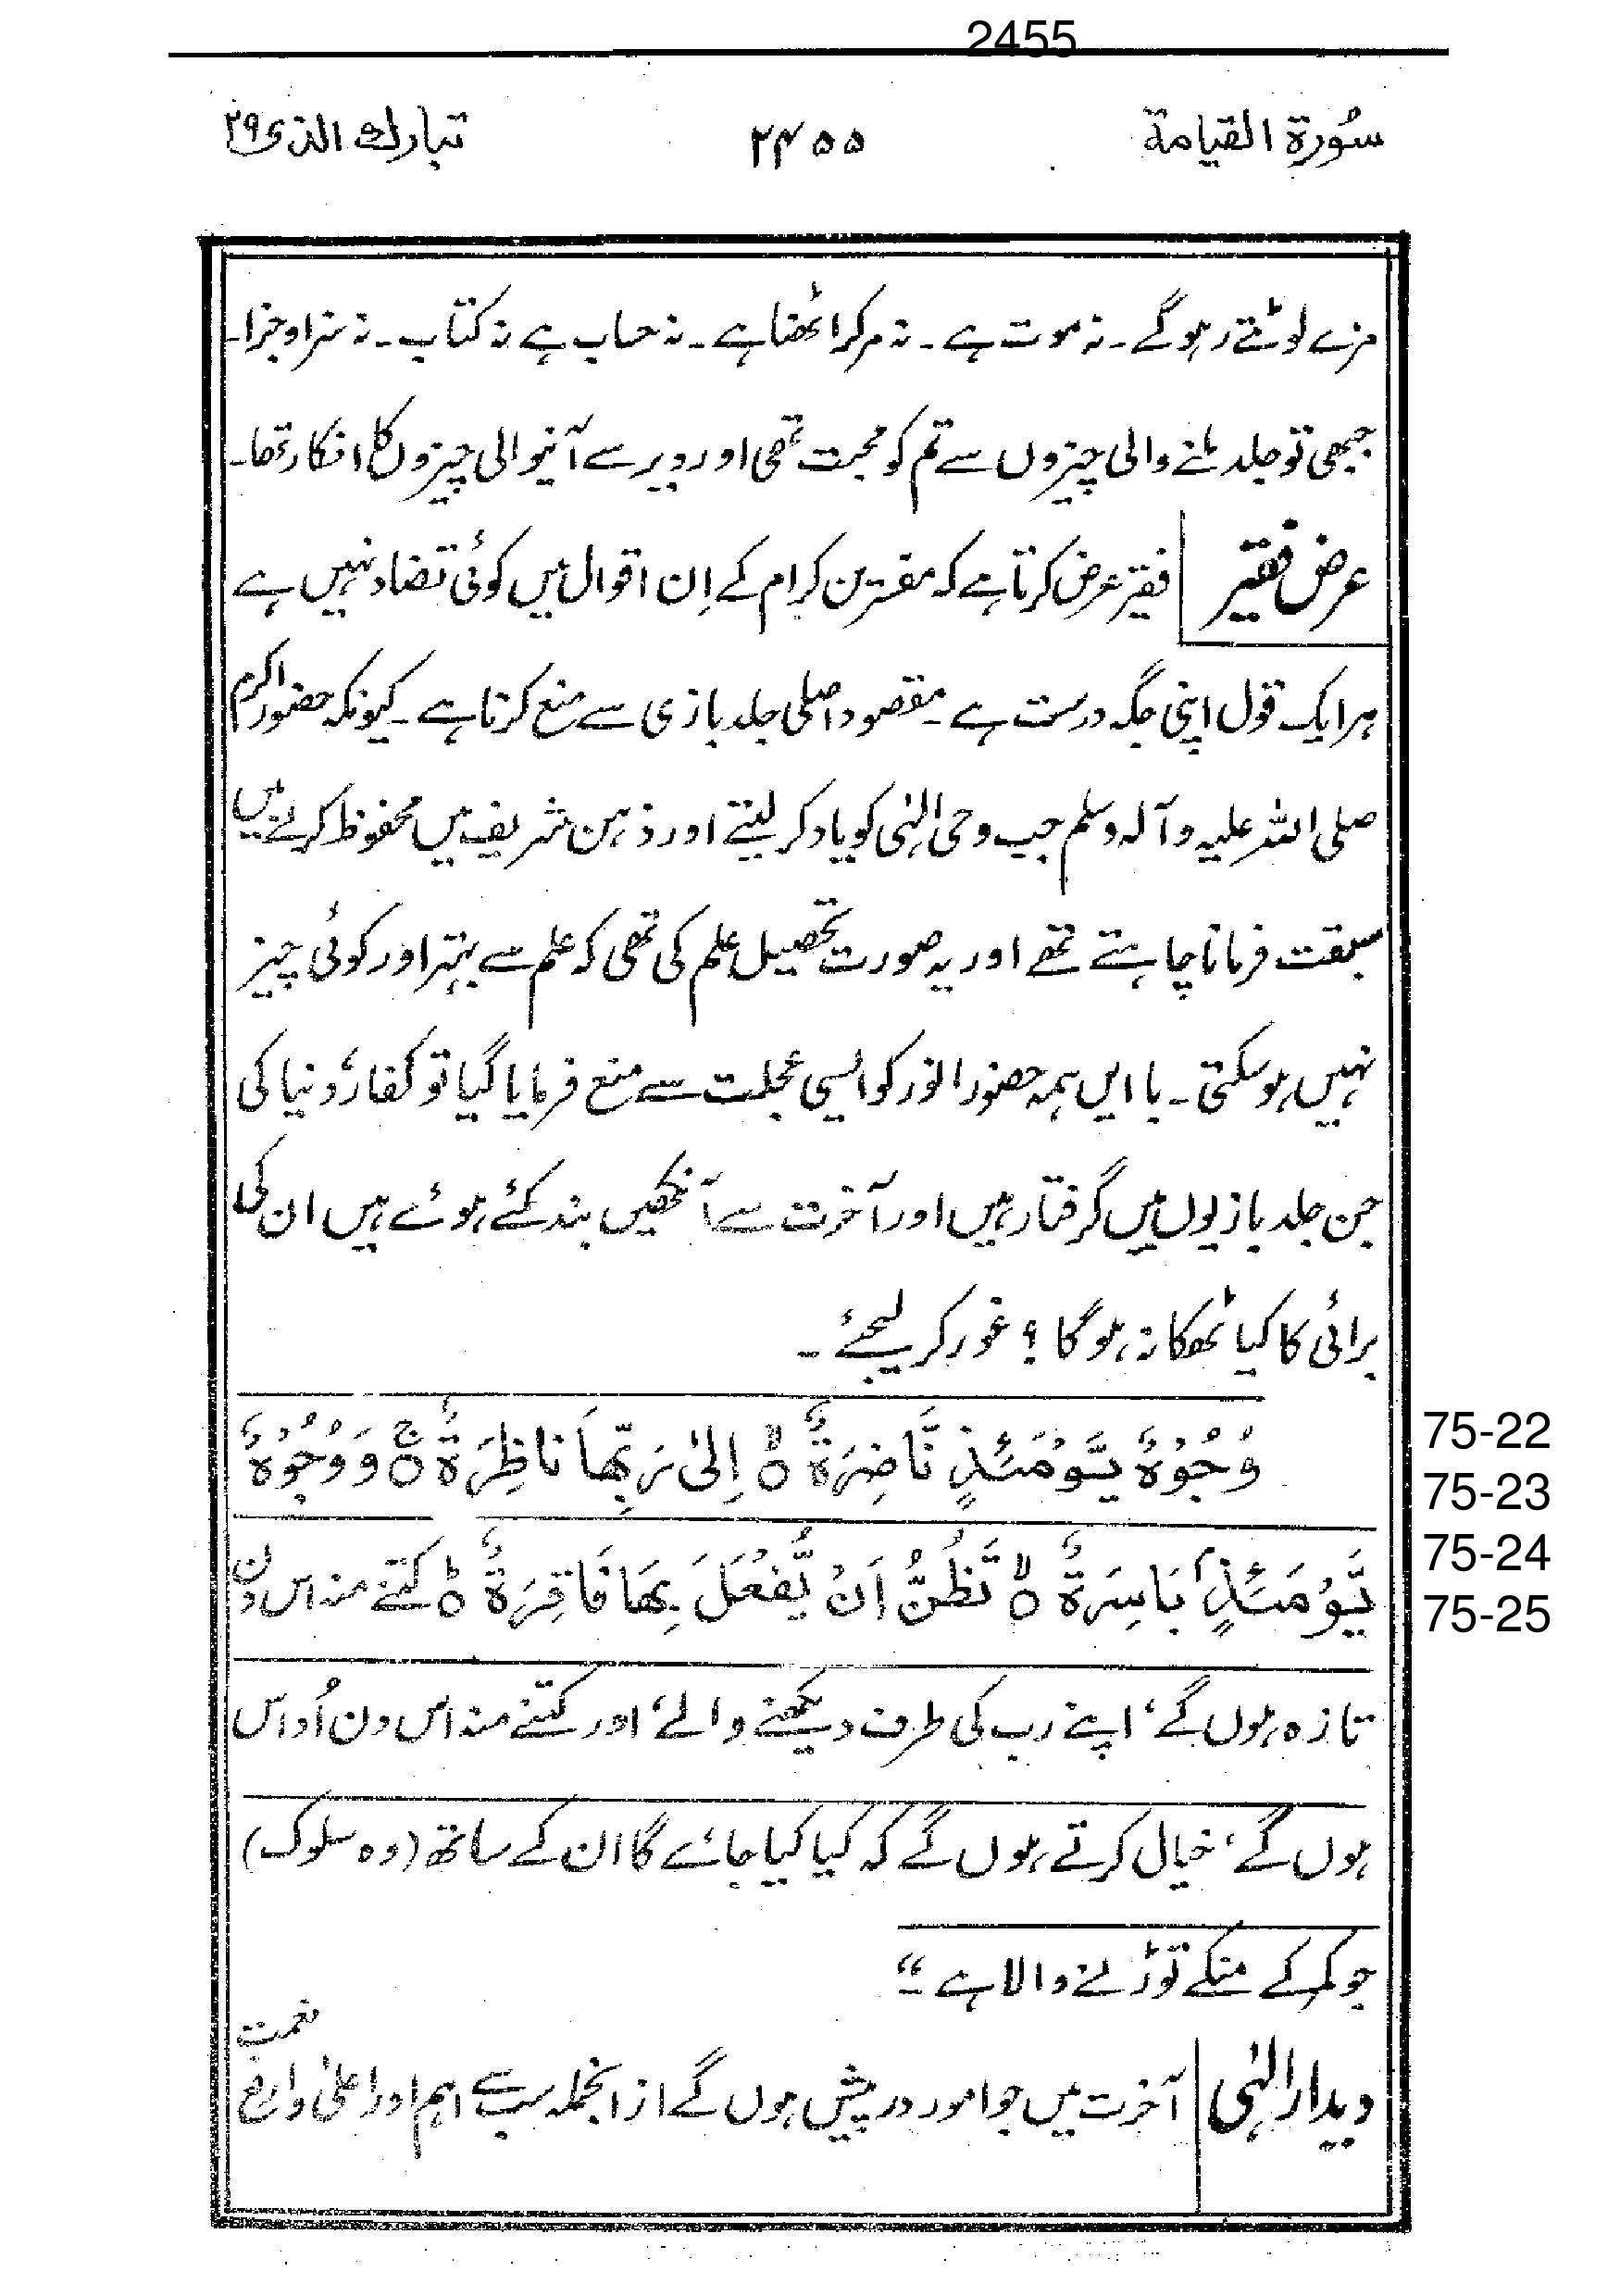 2455
سُورة القيامة ۲۴۵۵ تبارك الذى ۲۹
مزے لوٹتے رہو گے ۔ نہ موت ہے ۔ نہ مر کر اٹھنا ہے ۔ نہ حساب ہے نہ کتاب ۔ نہ سزا و جزا ۔
جبھی تو جلد ملنے والی چیزوں سے تم کو محبت تھی اور دیر سے آنیوالی چیزوں کا انکار تھا ۔
عرض فقیر فقیر عرض کرتا ہے کہ مفسرین کرام کے اِن اقوال میں کوئی تضاد نہیں ہے
ہر ایک قول اپنی جگہ درست ہے ۔ مقصود اصلی جلد بازی سے منع کرنا ہے ۔ کیونکہ حضور اکرم
صلی اللہ علیہ وآلہ وسلم جب وحی الٰہی کو یاد کر لیتے اور ذہن شریف میں محفوظ کرنے میں
سبقت فرمانا چاہتے تھے اور یہ صورت تحصیل علم کی تھی کہ علم سے بہتر اور کوئی چیز
نہیں ہوسکتی ۔ با ایں ہمہ حضور انور کو ایسی عجلت سے منع فرمایا گیا تو کفار، دنیا کی
جن جلد بازیوں میں گرفتار ہیں اور آخرت سے آنکھیں بند کئے ہوئے ہیں ان کی
برائی کا کیا ٹھکانہ ہوگا ؟ غور کر لیجئے ۔
وُجُوْهٌ يَّوْمَئِذٍ نَّاضِرَةٌ ۙ اِلٰى رَبِّهَا نَاظِرَةٌ ۚ وَ وُجُوْهٌ
75-22
75-23
يَّوْمَئِذٍۭ بَاسِرَةٌ ۙ تَظُنُّ اَنْ يُّفْعَلَ بِهَا فَاقِرَةٌ ؕ کتنے منہ اس دن
75-24
75-25
تازہ ہوں گے، اپنے رب کی طرف دیکھنے والے، اور کتنے منہ اس دن اُداس
ہوں گے، خیال کرتے ہوں گے کہ کیا کیا جائے گا ان کے ساتھ (وہ سلوک)
جو کمر کے منکے توڑنے والا ہے “
دیدار الٰہی آخرت میں جو امور در پیش ہوں گے ازانجملہ سب سے اہم اور اعلیٰ و ارفع نعمت